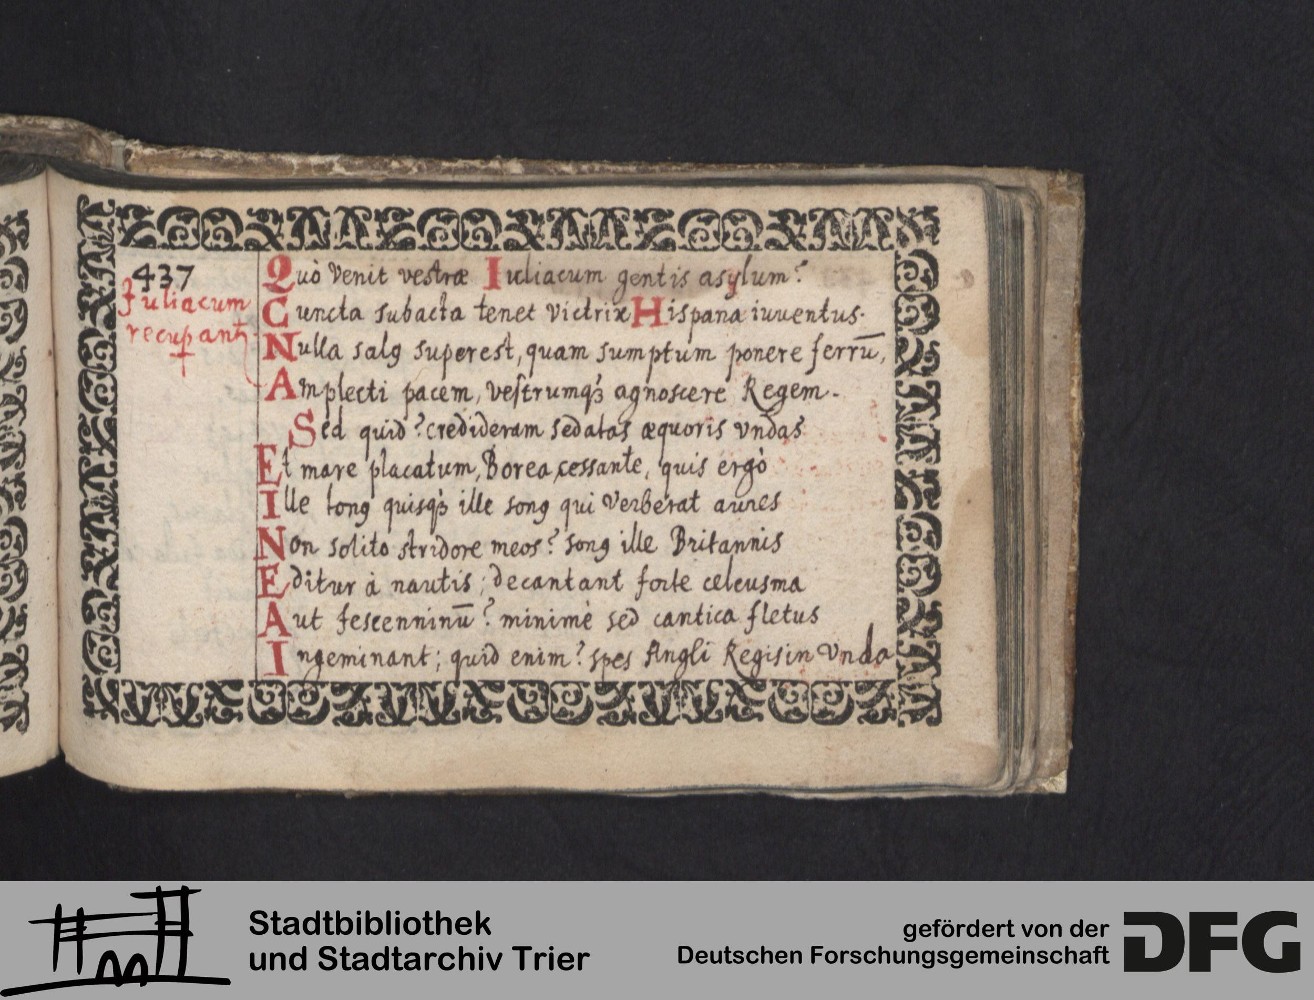 437
Juliacum
recupant
Quò venit vestræ Iuliacum gentis asylum?
Cuncta subacta tenet victrix Hispana iuuentus.
Nulla salꝯ superest, quam sumptum ponere ferrū,
Amplecti pacem, vestrumqꝫ agnoscere Regem.
Sed quid? credideram sedatas æquoris vndas
Et mare placatum, Borea cessante, quis ergò
Ille tonꝯ quisqꝫ ille sonꝯ qui verberat aures
Non solito stridore meos? sonꝯ ille Britannis
Editur à nautis; decantant forte celeusma
Aut fescenninū? minimè sed cantica fletus
Ingeminant; quid enim? spes Angli Regis in vnda
Stadtbibliothek
und Stadtarchiv Trier
gefördert von der
Deutschen Forschungsgemeinschaft
DFG